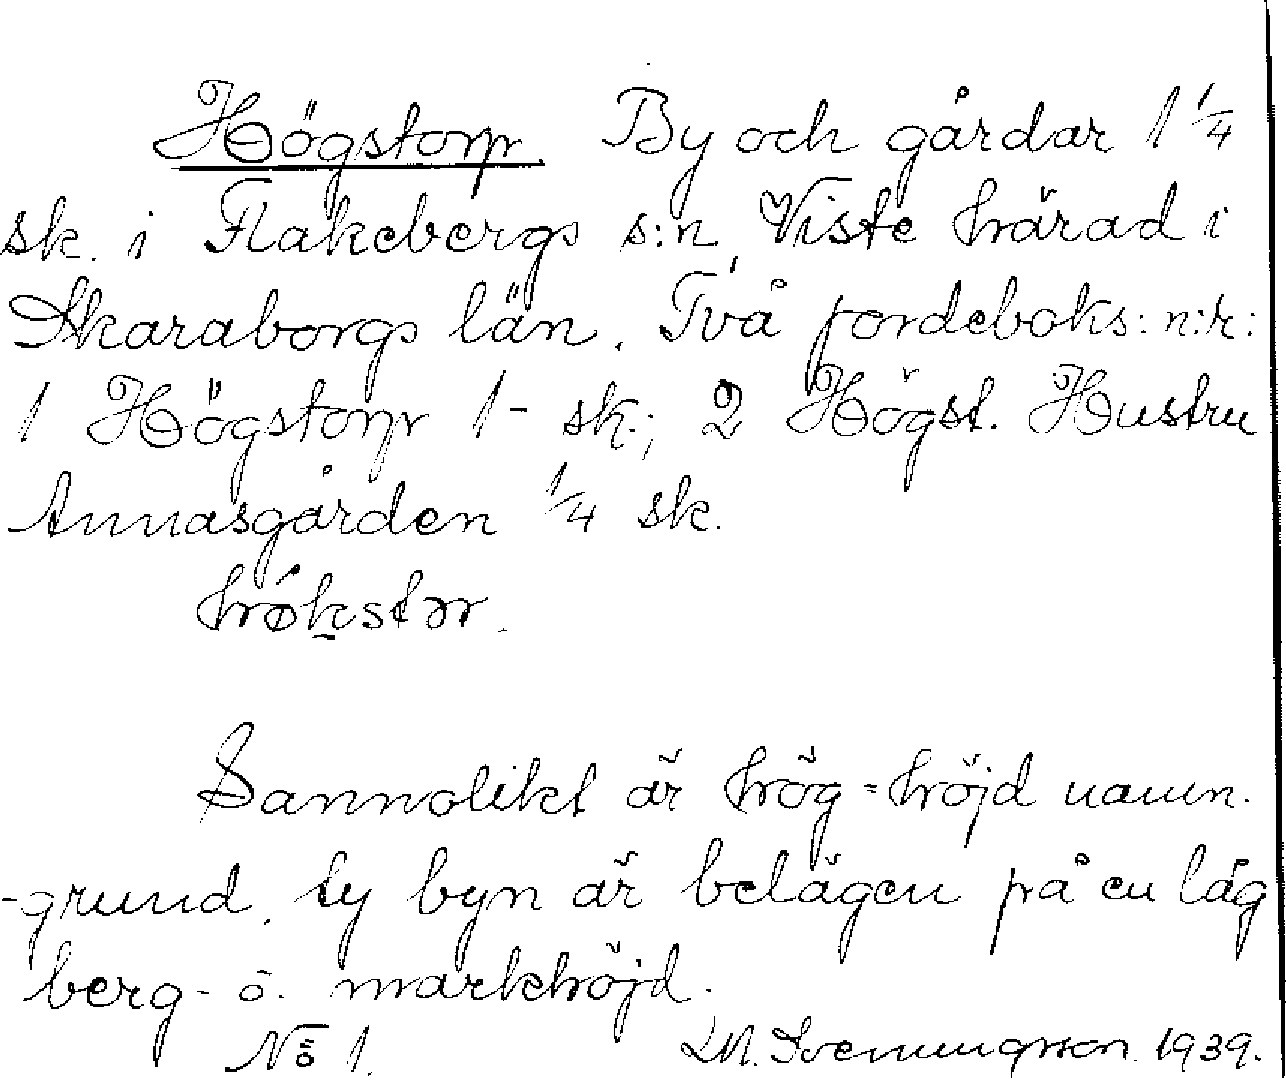 Högstorp. By och gårdar 1 1/4
sk. i Flakebergs s:n, Viste härad i
Skaraborgs län. Två jordeboks:n:r:
1 Högstorp 1- sk.; 2 Högst. Hustru
Annasgården 1/4 sk.
Sannolikt är hög = höjd namn-
-grund, ty byn är belägen på en låg
berg- o. markhöjd.
No 1. Svenungsson. 1939.